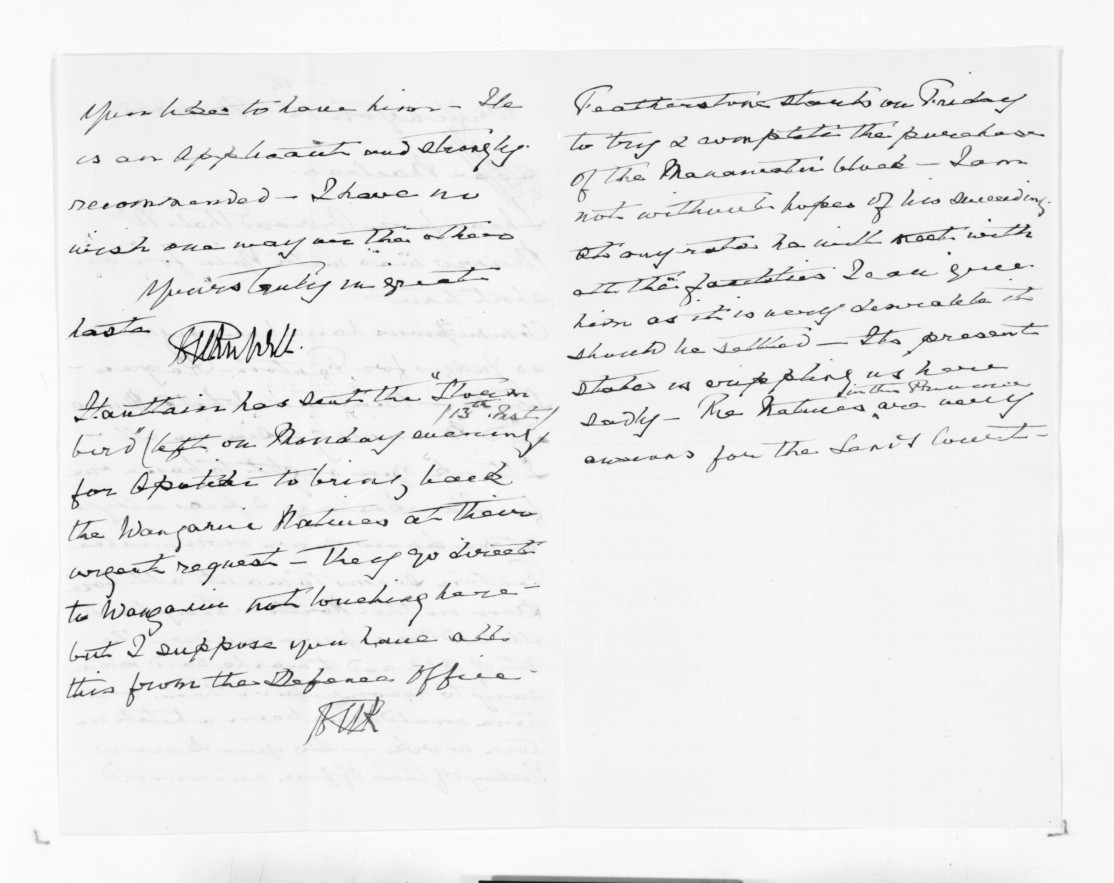 you like to have him – He
is an Applicant and strongly
recommended – I have no
wish one way or the other
Yours truly in great
haste

Haultain has sent the "Sturm
bird" (left on Monday evening / 13th Inst /
for Opotiki to bring back
the Wanganui Natives at their
urgent request – They go direct
to Wanganui not touching here –
but I suppose you have all
this from the Defence Office –

Featherston starts on Friday
to try & complete the purchase
of the Manawatu block – I am
not without hopes of his succeeding.
At any rate he will meet with
all the facilities I can give
him as it is very desirable it
should be settled – Its present
state is crippling us here
sadly – The Natives in this Province are very
anxious for the Land Court –